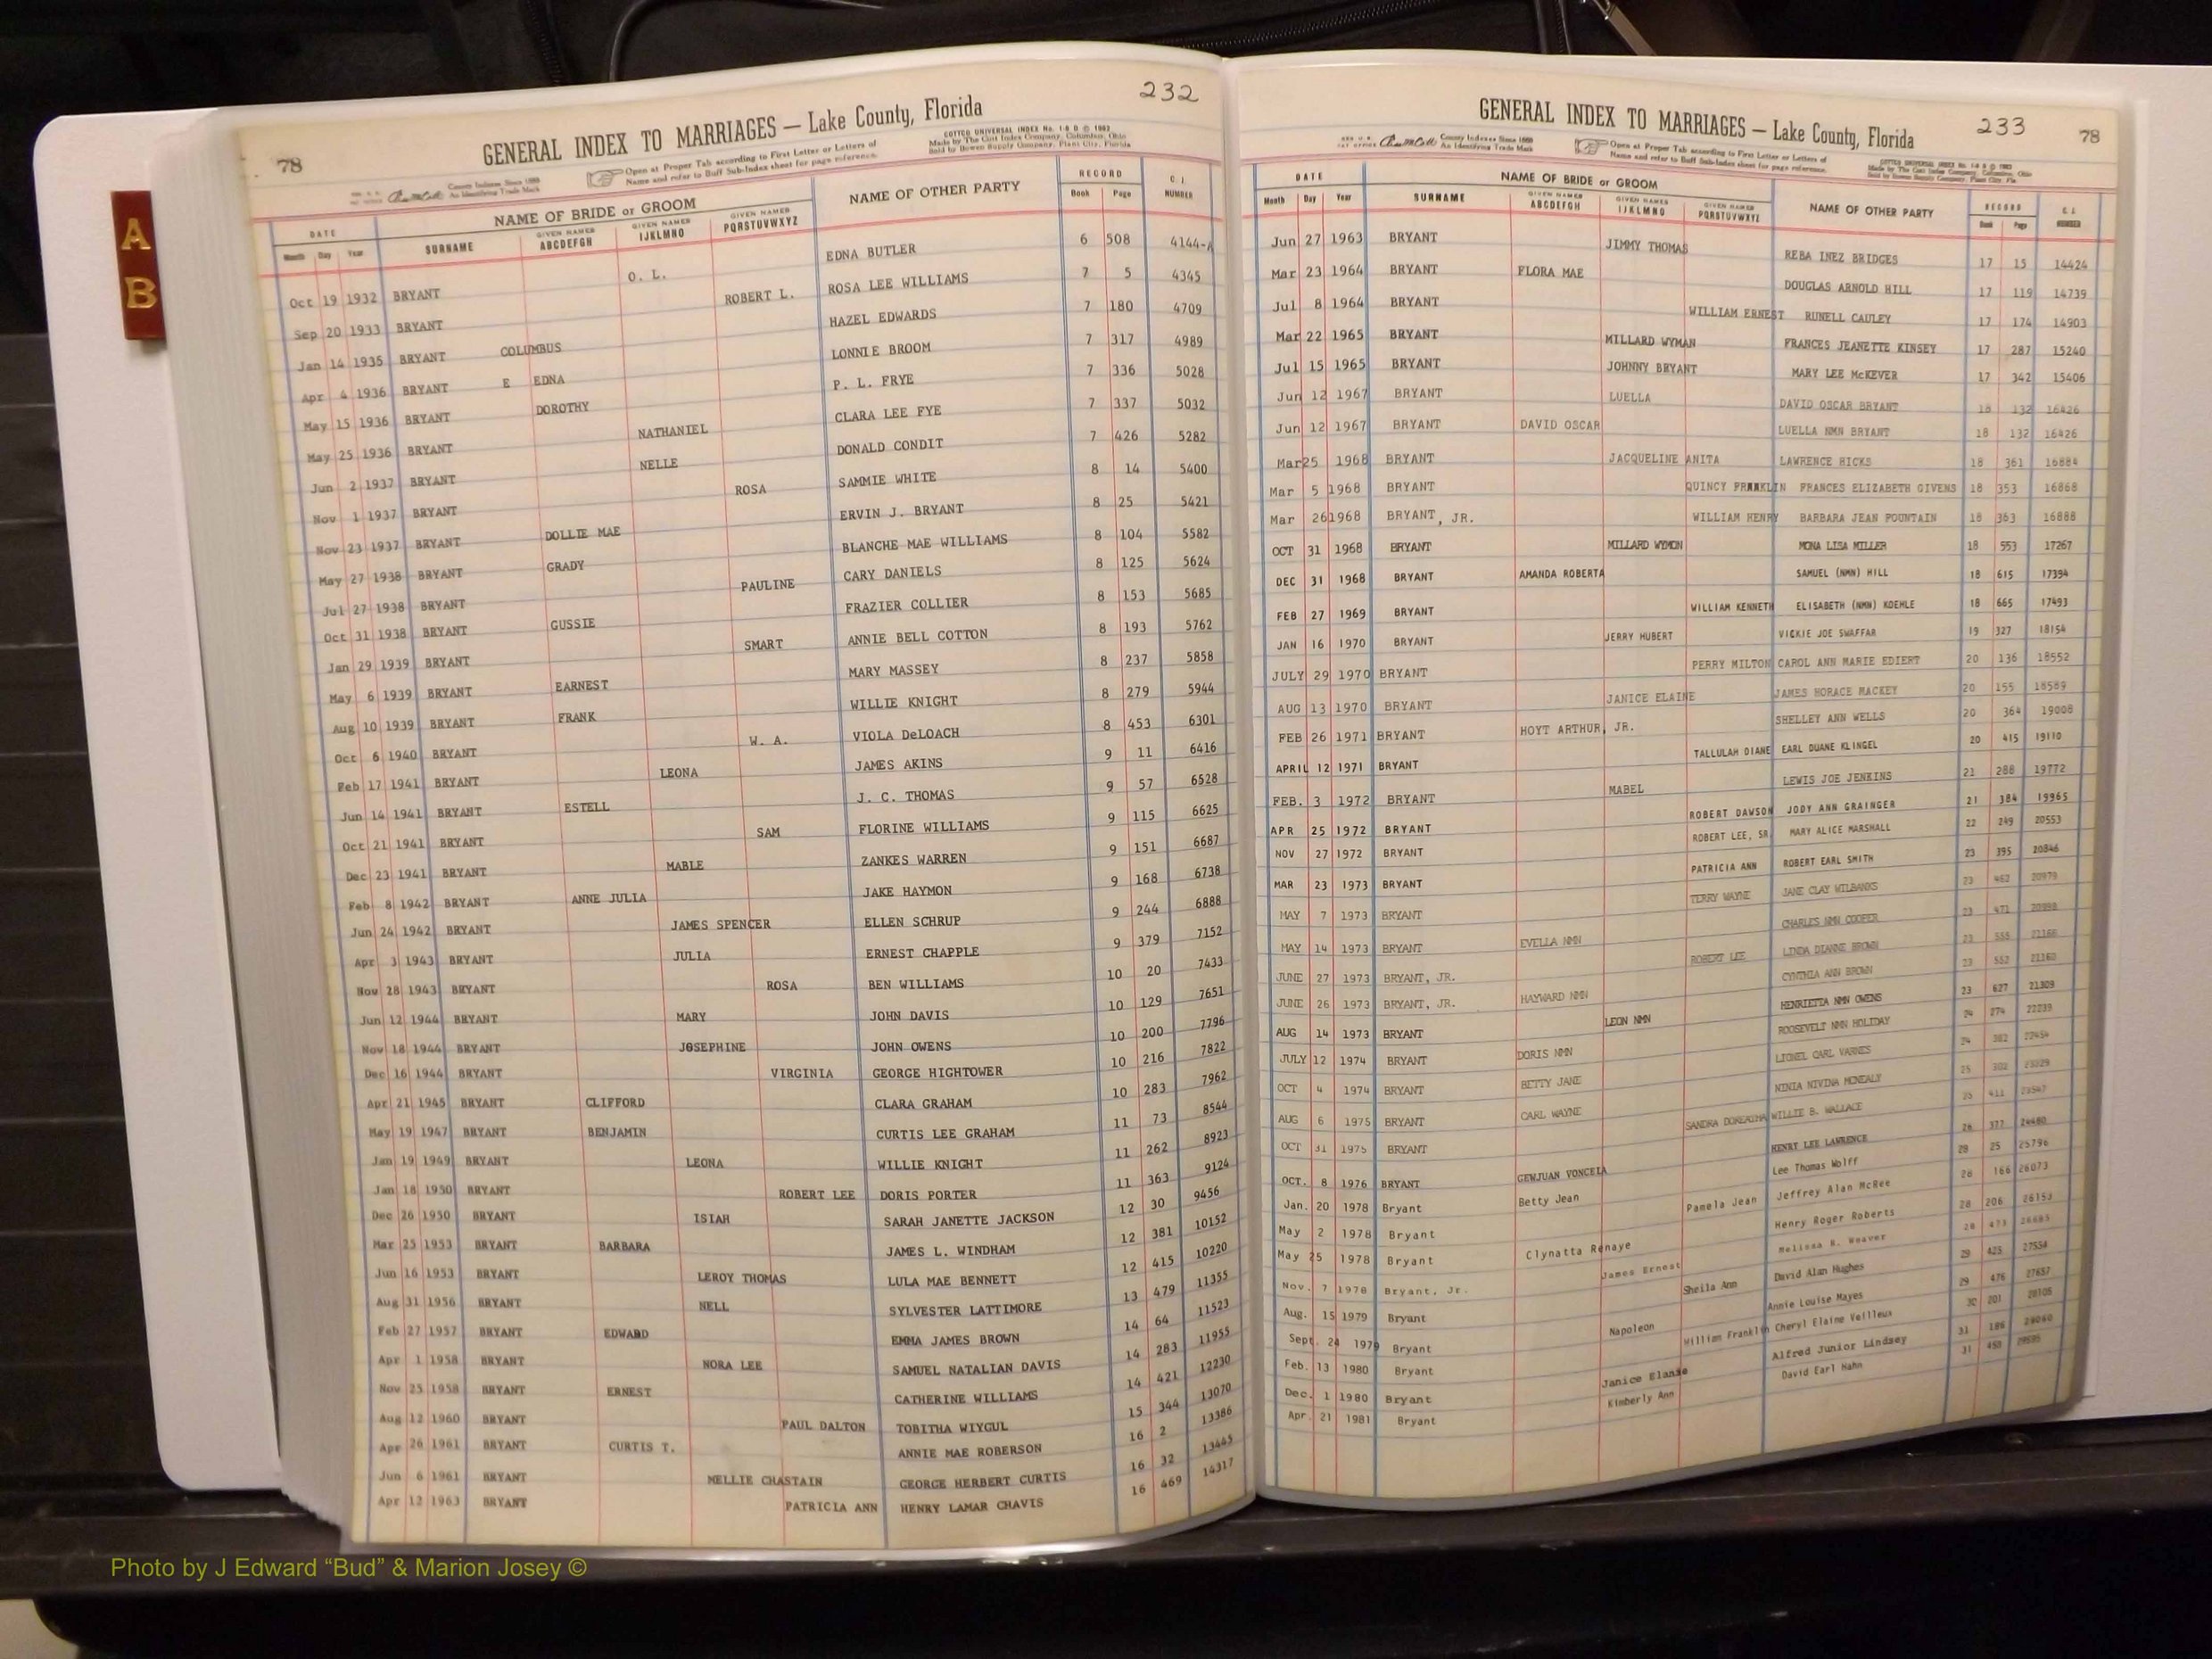 A
B
78
GENERAL INDEX TO MARRIAGES — Lake County, Florida
232
County Indexes Since 1888
An Identifying Trade Mark
Open at Proper Tab according to First Letter or Letters of
Name and refer to Buff Sub-Index sheet for page reference.
COTTCO UNIVERSAL INDEX No. 1-8 D © 1962
Made by The Cott Index Company, Columbus, Ohio
Sold by Bowen Supply Company, Plant City, Florida
DATE NAME OF BRIDE or GROOM NAME OF OTHER PARTY RECORD C. I. NUMBER
Month Day Year SURNAME GIVEN NAMES ABCDEFGH GIVEN NAMES IJKLMNO GIVEN NAMES PQRSTUVWXYZ Book Page
Oct 19 1932 BRYANT O. L. EDNA BUTLER 6 508 4144-A
Sep 20 1933 BRYANT ROBERT L. ROSA LEE WILLIAMS 7 5 4345
Jan 14 1935 BRYANT COLUMBUS HAZEL EDWARDS 7 180 4709
Apr 4 1936 BRYANT E EDNA LONNIE BROOM 7 317 4989
May 15 1936 BRYANT DOROTHY P. L. FRYE 7 336 5028
May 25 1936 BRYANT NATHANIEL CLARA LEE FYE 7 337 5032
Jun 2 1937 BRYANT NELLE DONALD CONDIT 7 426 5282
Nov 1 1937 BRYANT ROSA SAMMIE WHITE 8 14 5400
Nov 23 1937 BRYANT DOLLIE MAE ERVIN J. BRYANT 8 25 5421
May 27 1938 BRYANT GRADY BLANCHE MAE WILLIAMS 8 104 5582
Jul 27 1938 BRYANT PAULINE CARY DANIELS 8 125 5624
Oct 31 1938 BRYANT GUSSIE FRAZIER COLLIER 8 153 5685
Jan 29 1939 BRYANT SMART ANNIE BELL COTTON 8 193 5762
May 6 1939 BRYANT EARNEST MARY MASSEY 8 237 5858
Aug 10 1939 BRYANT FRANK WILLIE KNIGHT 8 279 5944
Oct 6 1940 BRYANT W. A. VIOLA DeLOACH 8 453 6301
Feb 17 1941 BRYANT LEONA JAMES AKINS 9 11 6416
Jun 14 1941 BRYANT ESTELL J. C. THOMAS 9 57 6528
Oct 21 1941 BRYANT SAM FLORINE WILLIAMS 9 115 6625
Dec 23 1941 BRYANT MABLE ZANKES WARREN 9 151 6687
Feb 8 1942 BRYANT ANNE JULIA JAKE HAYMON 9 168 6738
Jun 24 1942 BRYANT JAMES SPENCER ELLEN SCHRUP 9 244 6888
Apr 3 1943 BRYANT JULIA ERNEST CHAPPLE 9 379 7152
Nov 28 1943 BRYANT ROSA BEN WILLIAMS 10 20 7433
Jun 12 1944 BRYANT MARY JOHN DAVIS 10 129 7651
Nov 18 1944 BRYANT JOSEPHINE JOHN OWENS 10 200 7796
Dec 16 1944 BRYANT VIRGINIA GEORGE HIGHTOWER 10 216 7822
Apr 21 1945 BRYANT CLIFFORD CLARA GRAHAM 10 283 7962
May 19 1947 BRYANT BENJAMIN CURTIS LEE GRAHAM 11 73 8544
Jan 19 1949 BRYANT LEONA WILLIE KNIGHT 11 262 8923
Jan 18 1950 BRYANT ROBERT LEE DORIS PORTER 11 363 9124
Dec 26 1950 BRYANT ISIAH SARAH JANETTE JACKSON 12 30 9456
Mar 25 1953 BRYANT BARBARA JAMES L. WINDHAM 12 381 10152
Jun 16 1953 BRYANT LEROY THOMAS LULA MAE BENNETT 12 415 10220
Aug 31 1956 BRYANT NELL SYLVESTER LATTIMORE 13 479 11355
Feb 27 1957 BRYANT EDWARD EMMA JAMES BROWN 14 64 11523
Apr 1 1958 BRYANT NORA LEE SAMUEL NATALIAN DAVIS 14 283 11955
Nov 25 1958 BRYANT ERNEST CATHERINE WILLIAMS 14 421 12230
Aug 12 1960 BRYANT PAUL DALTON TOBITHA WIYGUL 15 344 13070
Apr 26 1961 BRYANT CURTIS T. ANNIE MAE ROBERSON 16 2 13386
Jun 6 1961 BRYANT MELLIE CHASTAIN GEORGE HERBERT CURTIS 16 32 13445
Apr 12 1963 BRYANT PATRICIA ANN HENRY LAMAR CHAVIS 16 469 14317
GENERAL INDEX TO MARRIAGES — Lake County, Florida
233
78
County Indexes Since 1888
An Identifying Trade Mark
Open at Proper Tab according to First Letter or Letters of
Name and refer to Buff Sub-Index sheet for page reference.
DATE NAME OF BRIDE or GROOM NAME OF OTHER PARTY RECORD C. I. NUMBER
Month Day Year SURNAME GIVEN NAMES ABCDEFGH GIVEN NAMES IJKLMNO GIVEN NAMES PQRSTUVWXYZ Book Page
Jun 27 1963 BRYANT JIMMY THOMAS REBA INEZ BRIDGES 17 15 14424
Mar 23 1964 BRYANT FLORA MAE DOUGLAS ARNOLD HILL 17 119 14739
Jul 8 1964 BRYANT WILLIAM ERNEST RUNELL CAULEY 17 174 14903
Mar 22 1965 BRYANT MILLARD WYMAN FRANCES JEANETTE KINSEY 17 287 15240
Jul 15 1965 BRYANT JOHNNY BRYANT MARY LEE McKEVER 17 342 15406
Jun 12 1967 BRYANT LUELLA DAVID OSCAR BRYANT 18 132 16426
Jun 12 1967 BRYANT DAVID OSCAR LUELLA NMN BRYANT 18 132 16426
Mar 25 1968 BRYANT JACQUELINE ANITA LAWRENCE HICKS 18 361 16884
Mar 5 1968 BRYANT QUINCY FRANKLIN FRANCES ELIZABETH GIVENS 18 353 16868
Mar 26 1968 BRYANT, JR. WILLIAM HENRY BARBARA JEAN FOUNTAIN 18 363 16888
OCT 31 1968 BRYANT MILLARD WYMON MONA LISA MILLER 18 553 17267
DEC 31 1968 BRYANT AMANDA ROBERTA SAMUEL (NMN) HILL 18 615 17394
FEB 27 1969 BRYANT WILLIAM KENNETH ELISABETH (NMN) KOEHLE 18 665 17493
JAN 16 1970 BRYANT JERRY HUBERT VICKIE JOE SWAFFAR 19 327 18154
JULY 29 1970 BRYANT PERRY MILTON CAROL ANN MARIE EDIERT 20 136 18552
AUG 13 1970 BRYANT JANICE ELAINE JAMES HORACE MACKEY 20 155 18589
FEB 26 1971 BRYANT HOYT ARTHUR, JR. SHELLEY ANN WELLS 20 364 19008
APRIL 12 1971 BRYANT TALLULAH DIANE EARL DUANE KLINGEL 20 415 19110
FEB. 3 1972 BRYANT MABEL LEWIS JOE JENKINS 21 288 19772
APR 25 1972 BRYANT ROBERT DAWSON JODY ANN GRAINGER 21 384 19965
NOV 27 1972 BRYANT ROBERT LEE, SR MARY ALICE MARSHALL 22 249 20553
MAR 23 1973 BRYANT PATRICIA ANN ROBERT EARL SMITH 23 395 20846
MAY 7 1973 BRYANT TERRY WAYNE JANE CLAY WILBANKS 23 462 20979
MAY 14 1973 BRYANT EVELLA NMN CHARLES NMN COOPER 23 471
JUNE 27 1973 BRYANT, JR. ROBERT LEE LINDA DIANNE BROWN 23 555 21168
JUNE 26 1973 BRYANT, JR. HAYWARD NMN CYNTHIA ANN BROWN 23 552 21160
AUG 14 1973 BRYANT LEON NMN HENRIETTA NMN OWENS 23 627 21309
JULY 12 1974 BRYANT DORIS NMN ROOSEVELT NMN HOLIDAY 24 274
OCT 4 1974 BRYANT BETTY JANE LIONEL CARL VARNES 24 382
AUG 6 1975 BRYANT CARL WAYNE NINIA NIVINA MCNEALY 25
OCT 31 1975 BRYANT SANDRA WILLIE B. WALLACE 25 411
OCT. 8 1976 BRYANT GEWJUAN VONCELA HENRY LEE LAWRENCE 26 377
Jan. 20 1978 Bryant Betty Jean Lee Thomas Wolff 28 25 25796
May 2 1978 Bryant Pamela Jean Jeffrey Alan McRee 28 166 26073
May 25 1978 Bryant Clynatta Renaye Henry Roger Roberts 28 206 26153
Nov. 7 1978 Bryant, Jr. James Ernest Melissa R. Weaver 28 473
Aug. 15 1979 Bryant Sheila Ann David Alan Hughes 29 425 27554
Sept. 24 1979 Bryant Napoleon Annie Louise Mayes 29 476 27657
Feb. 13 1980 Bryant William Franklin Cheryl Elaine Veilleux 30 201 28105
Dec. 1 1980 Bryant Janice Elanie Alfred Junior Lindsey 31 186
Apr. 21 1981 Bryant Kimberly Ann David Earl Hahn 31 450
Photo by J Edward “Bud” & Marion Josey ©